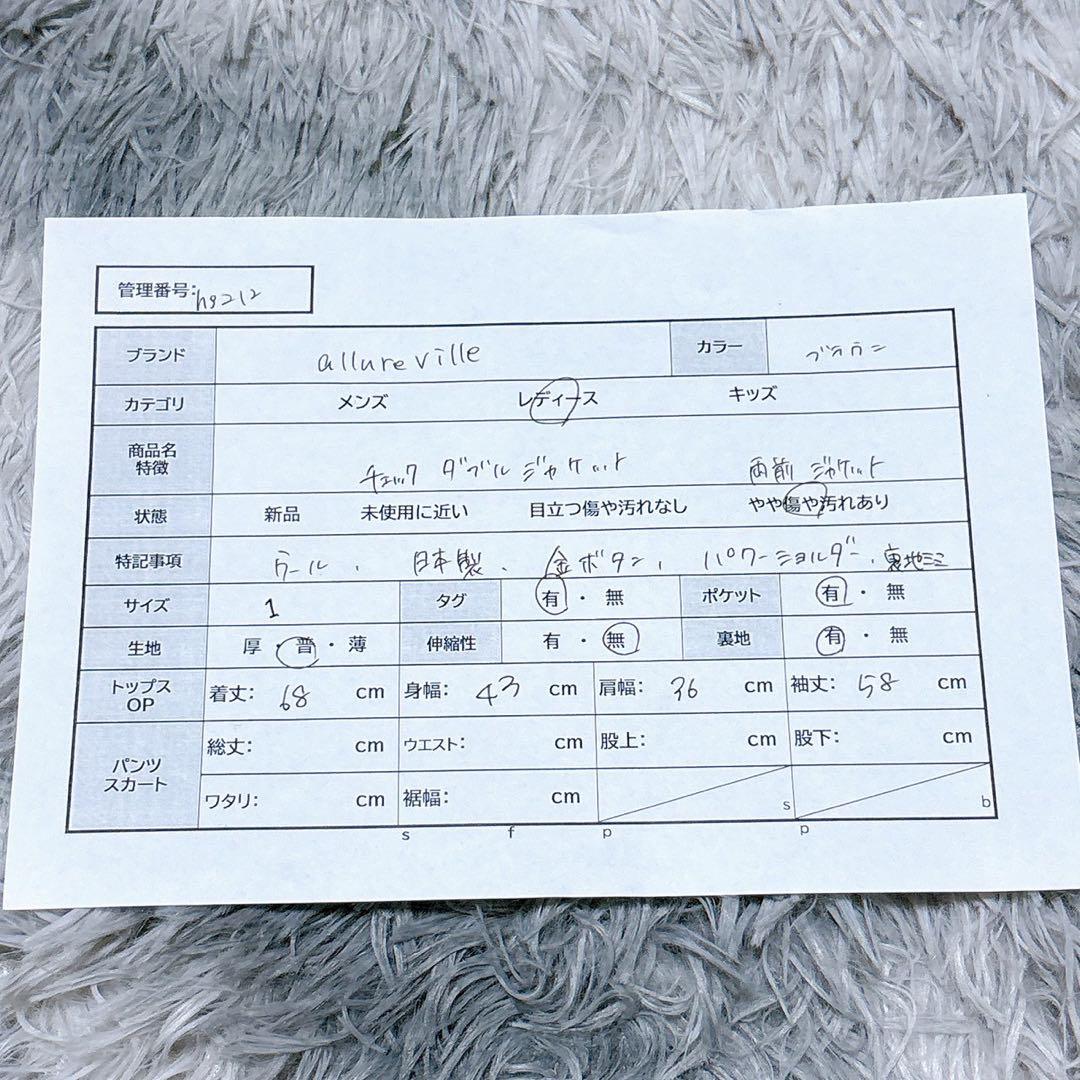 管理番号: hg212
ブランド allureville カラー ブラウン
カテゴリ メンズ レディース キッズ
商品名 特徴 チェック ダブル ジャケット 両前 ジャケット
状態 新品 未使用に近い 目立つ傷や汚れなし やや傷や汚れあり
特記事項 ウール、日本製、金ボタン、パワーショルダー、裏地
サイズ 1 タグ 有・無 ポケット 有・無
生地 厚・普・薄 伸縮性 有 無 裏地 有・無
トップス OP 着丈: 68 cm 身幅: 43 cm 肩幅: 36 cm 袖丈: 58 cm
パンツ スカート 総丈: cm ウエスト: cm 股上: cm 股下: cm
ワタリ: cm 裾幅: cm s b
s f p p